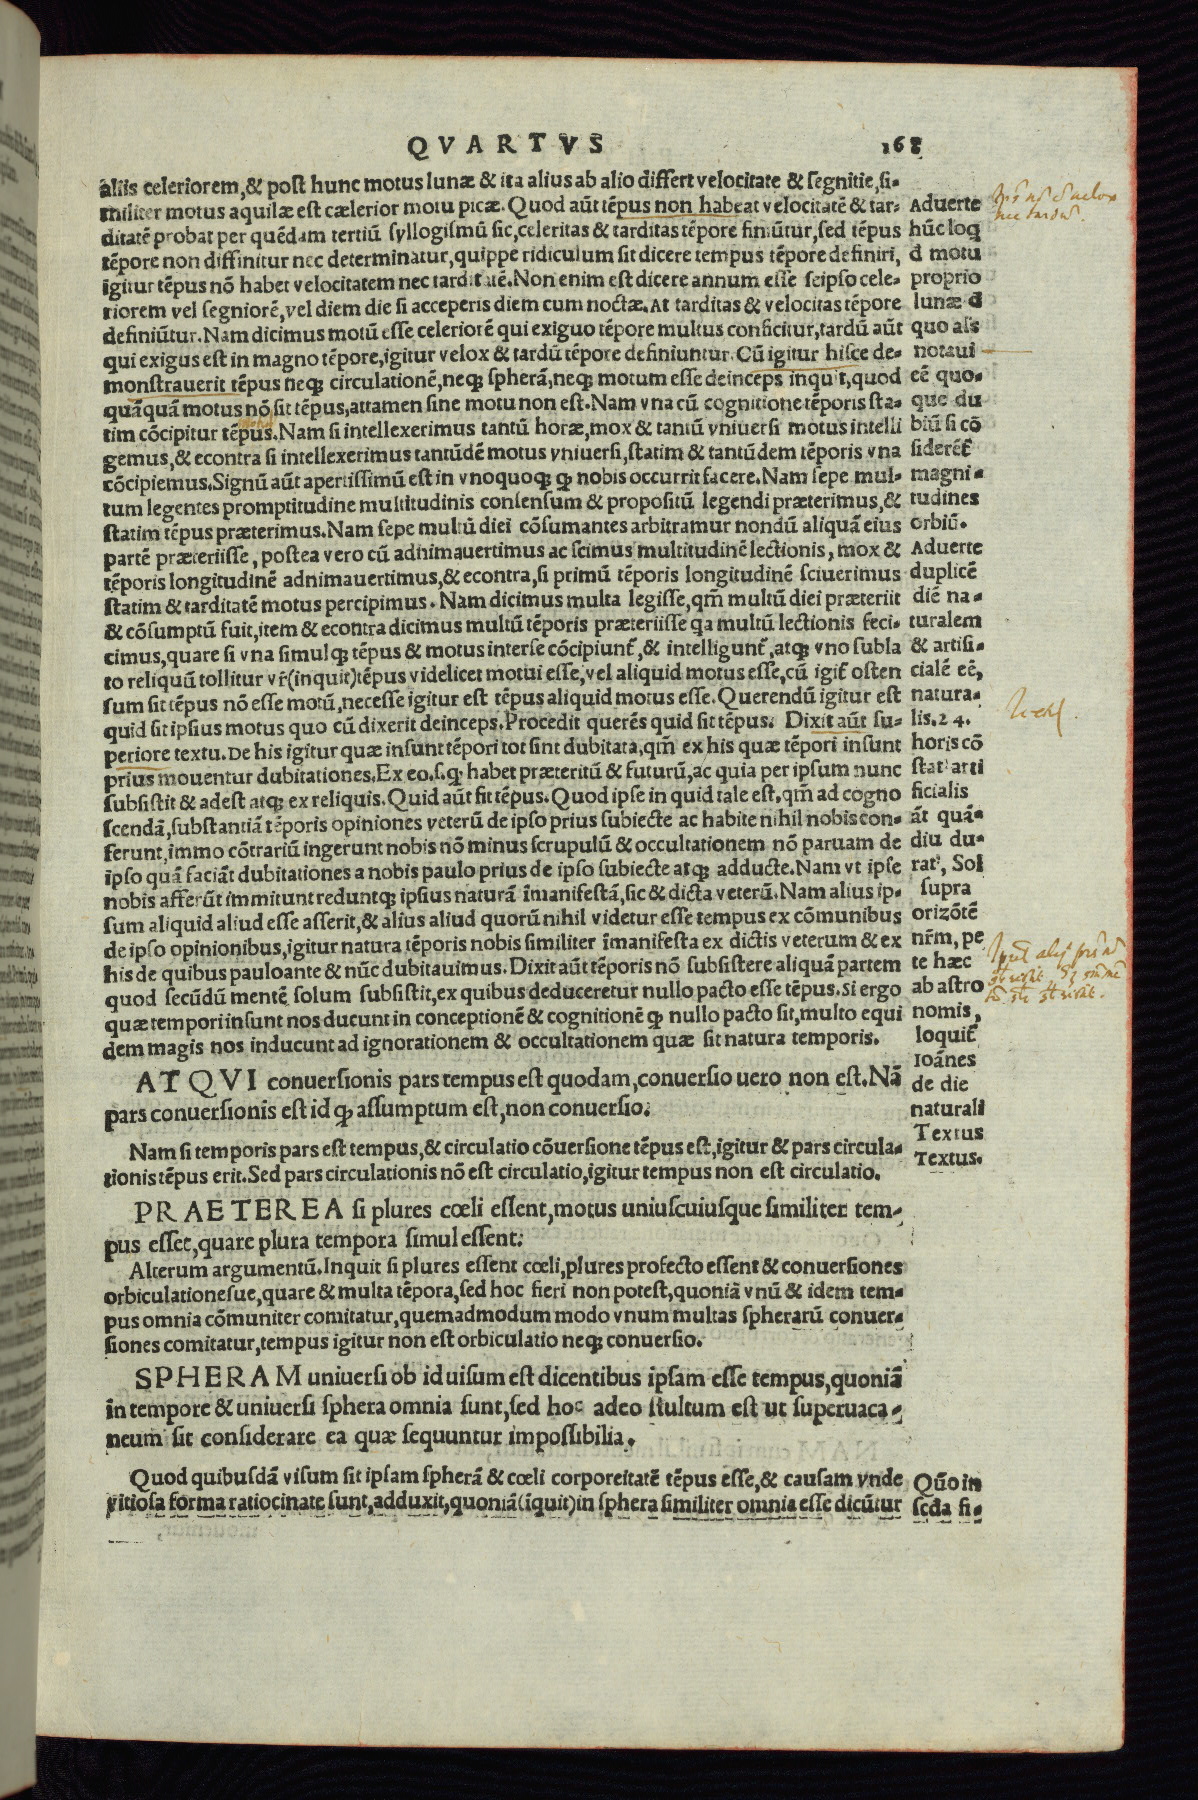 QVARTVS 168
aliis celeriorem,& post hunc motus lunæ & ita alius ab alio differt velocitate & segnitie,si-
militer motus aquilæ est cælerior motu picæ. Quod aũt tẽpus non habeat velocitatẽ & tar-
ditatẽ probat per quẽdam tertiũ syllogismũ sic,celeritas & tarditas tẽpore finiũtur,sed tẽpus
tẽpore non diffinitur nec determinatur,quippe ridiculum sit dicere tempus tẽpore definiri,
igitur tẽpus nõ habet velocitatem nec tarditatẽ. Non enim est dicere annum esse seipso cele-
riorem vel segniorẽ,vel diem die si acceperis diem cum noctæ. At tarditas & velocitas tẽpore
definiũtur. Nam dicimus motũ esse celeriorẽ qui exiguo tẽpore multus conficitur,tardũ aũt
qui exigus est in magno tẽpore,igitur velox & tardũ tẽpore definiuntur. Cũ igitur hisce de-
monstrauerit tẽpus neqꝫ circulationẽ,neqꝫ spherã,neqꝫ motum esse deinceps inquit,quod
quãquã motus nõ sit tẽpus,attamen sine motu non est. Nam vna cũ cognitione tẽporis sta-
tim cõcipitur tẽpus. Nam si intellexerimus tantũ horæ,mox & tantũ vniuersi motus intelli
gemus,& econtra si intellexerimus tantũdẽ motus vniuersi,statim & tantũdem tẽporis vna
cõcipiemus. Signũ aũt apertissimũ est in vnoquoqꝫ ꝙ nobis occurrit facere. Nam sepe mul-
tum legentes promptitudine multitudinis consensum & propositũ legendi præterimus,&
statim tẽpus præterimus. Nam sepe multũ diei cõsumantes arbitramur nondũ aliquã eius
partẽ præteriisse, postea vero cũ adnimauertimus ac scimus multitudinẽ lectionis, mox &
tẽporis longitudinẽ adnimauertimus,& econtra,si primũ tẽporis longitudinẽ sciuerimus
statim & tarditatẽ motus percipimus. Nam dicimus multa legisse,qm̃ multũ diei præteriit
& cõsumptũ fuit,item & econtra dicimus multũ tẽporis præteriisse qa multũ lectionis feci-
cimus,quare si vna simulqꝫ tẽpus & motus interse cõcipiunt̃,& intelligunt̃,atqꝫ vno subla
to reliquũ tollitur vr̃(inquit)tẽpus videlicet motui esse,vel aliquid motus esse,cũ igit̃ osten
sum sit tẽpus nõ esse motũ,necesse igitur est tẽpus aliquid motus esse. Querendũ igitur est
quid sit ipsius motus quo cũ dixerit deinceps. Procedit querẽs quid sit tẽpus. Dixit aũt su-
periore textu. De his igitur quæ insunt tẽpori tot sint dubitata,qm̃ ex his quæ tẽpori insunt
prius mouentur dubitationes. Ex eo.s.ꝙ habet præteritũ & futurũ,ac quia per ipsum nunc
subsistit & adest atqꝫ ex reliquis. Quid aũt sit tẽpus. Quod ipse in quid tale est,qm̃ ad cogno
scendã,substantiã tẽporis opiniones veterũ de ipso prius subiecte ac habite nihil nobis con-
ferunt,immo cõtrariũ ingerunt nobis nõ minus scrupulũ & occultationem nõ paruam de
ipso quã faciãt dubitationes a nobis paulo prius de ipso subiecte atqꝫ adducte. Nam vt ipse
nobis afferũt immitunt reduntqꝫ ipsius naturã ĩmanifestã,sic & dicta veterũ. Nam alius ip-
sum aliquid aliud esse asserit,& alius aliud quorũ nihil videtur esse tempus ex cõmunibus
de ipso opinionibus,igitur natura tẽporis nobis similiter ĩmanifesta ex dictis veterum & ex
his de quibus pauloante & nũc dubitauimus. Dixit aũt tẽporis nõ subsistere aliquã partem
quod secũdũ mentẽ solum subsistit,ex quibus deduceretur nullo pacto esse tẽpus. Si ergo
quæ tempori insunt nos ducunt in conceptionẽ & cognitionẽ ꝙ nullo pacto sit,multo equi
dem magis nos inducunt ad ignorationem & occultationem quæ sit natura temporis.
ATQVI conuersionis pars tempus est quodam,conuersio uero non est. Nã
pars conuersionis est id ꝙ assumptum est,non conuersio.
Nam si temporis pars est tempus,& circulatio cõuersione tẽpus est,igitur & pars circula-
tionis tẽpus erit. Sed pars circulationis nõ est circulatio,igitur tempus non est circulatio.
PRAETEREA si plures cœli essent,motus uniuscuiusque similiter tem-
pus esset,quare plura tempora simul essent.
Alterum argumentũ. Inquit si plures essent cœli,plures profecto essent & conuersiones
orbiculationesue,quare & multa tẽpora,sed hoc fieri non potest,quoniã vnũ & idem tem-
pus omnia cõmuniter comitatur,quemadmodum modo vnum multas spherarũ conuer-
siones comitatur,tempus igitur non est orbiculatio neqꝫ conuersio.
SPHERAM uniuersi ob id uisum est dicentibus ipsam esse tempus,quoniã
in tempore & uniuersi sphera omnia sunt,sed hoc adeo stultum est ut superuaca-
neum sit considerare ea quæ sequuntur impossibilia.
Quod quibusdã visum sit ipsam spherã & cœli corporeitatẽ tẽpus esse,& causam vnde
vitiosa forma ratiocinate sunt,adduxit,quoniã(ĩquit)in sphera similiter omnia esse dicũtur
Aduerte
hũc loq
d motu
proprio
lunæ d
quo als
notaui
eẽ quo-
que du
biũ si cõ
sideret̃
magni-
tudines
orbiũ.
Aduerte
duplicẽ
diẽ na-
turalem
& artifi-
cialẽ eẽ,
natura-
lis.24.
horis cõ
stat arti
ficialis
ãt quã-
diu du-
rat, Sol
supra
orizõtẽ
nr̃m, pe
te hæc
ab astro
nomis,
loquit̃
Ioãnes
de die
naturali
Textus
Textus.
Quõ in
scda fi-